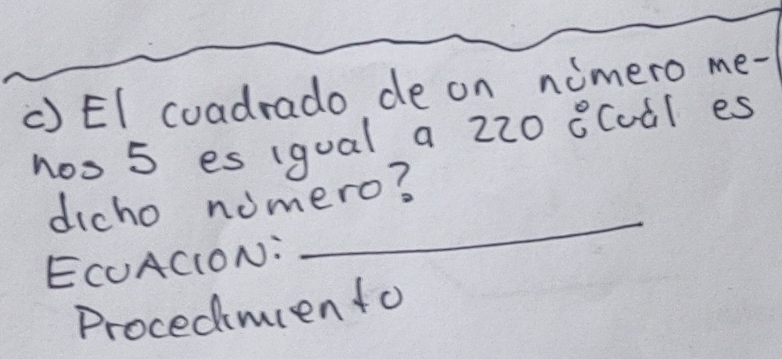 c) El cuadrado de un número me-
nos 5 es igual a 220 ¿Cuál es
dicho número?
ECUACION:
Procedimiento